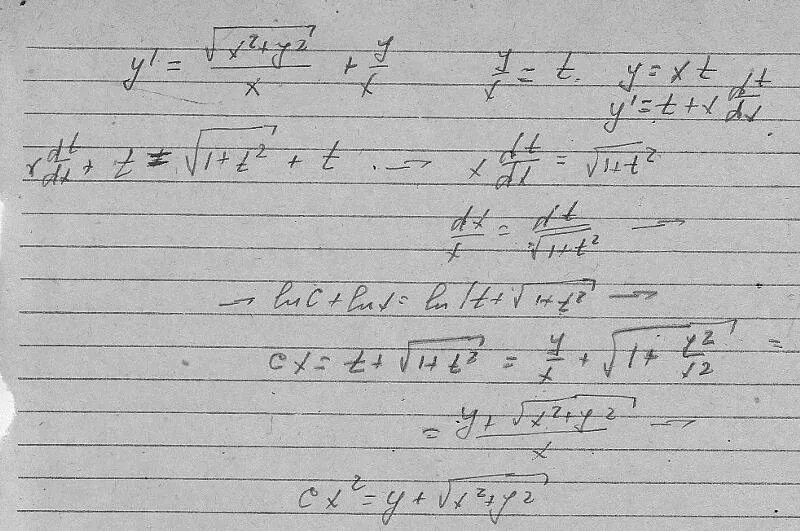 y' = √(x²+y²)/x + y/x    y/x = t.    y = xt
y' = t + x dt/dx
x dt/dx + t = √(1+t²) + t → x dt/dx = √(1+t²)
dx/x = dt/√(1+t²) →
→ ln C + ln x = ln |t + √(1+t²) →
Cx = t + √(1+t²) = y/x + √(1 + y²/x²) =
= (y + √(x²+y²))/x →
Cx² = y + √(x²+y²)